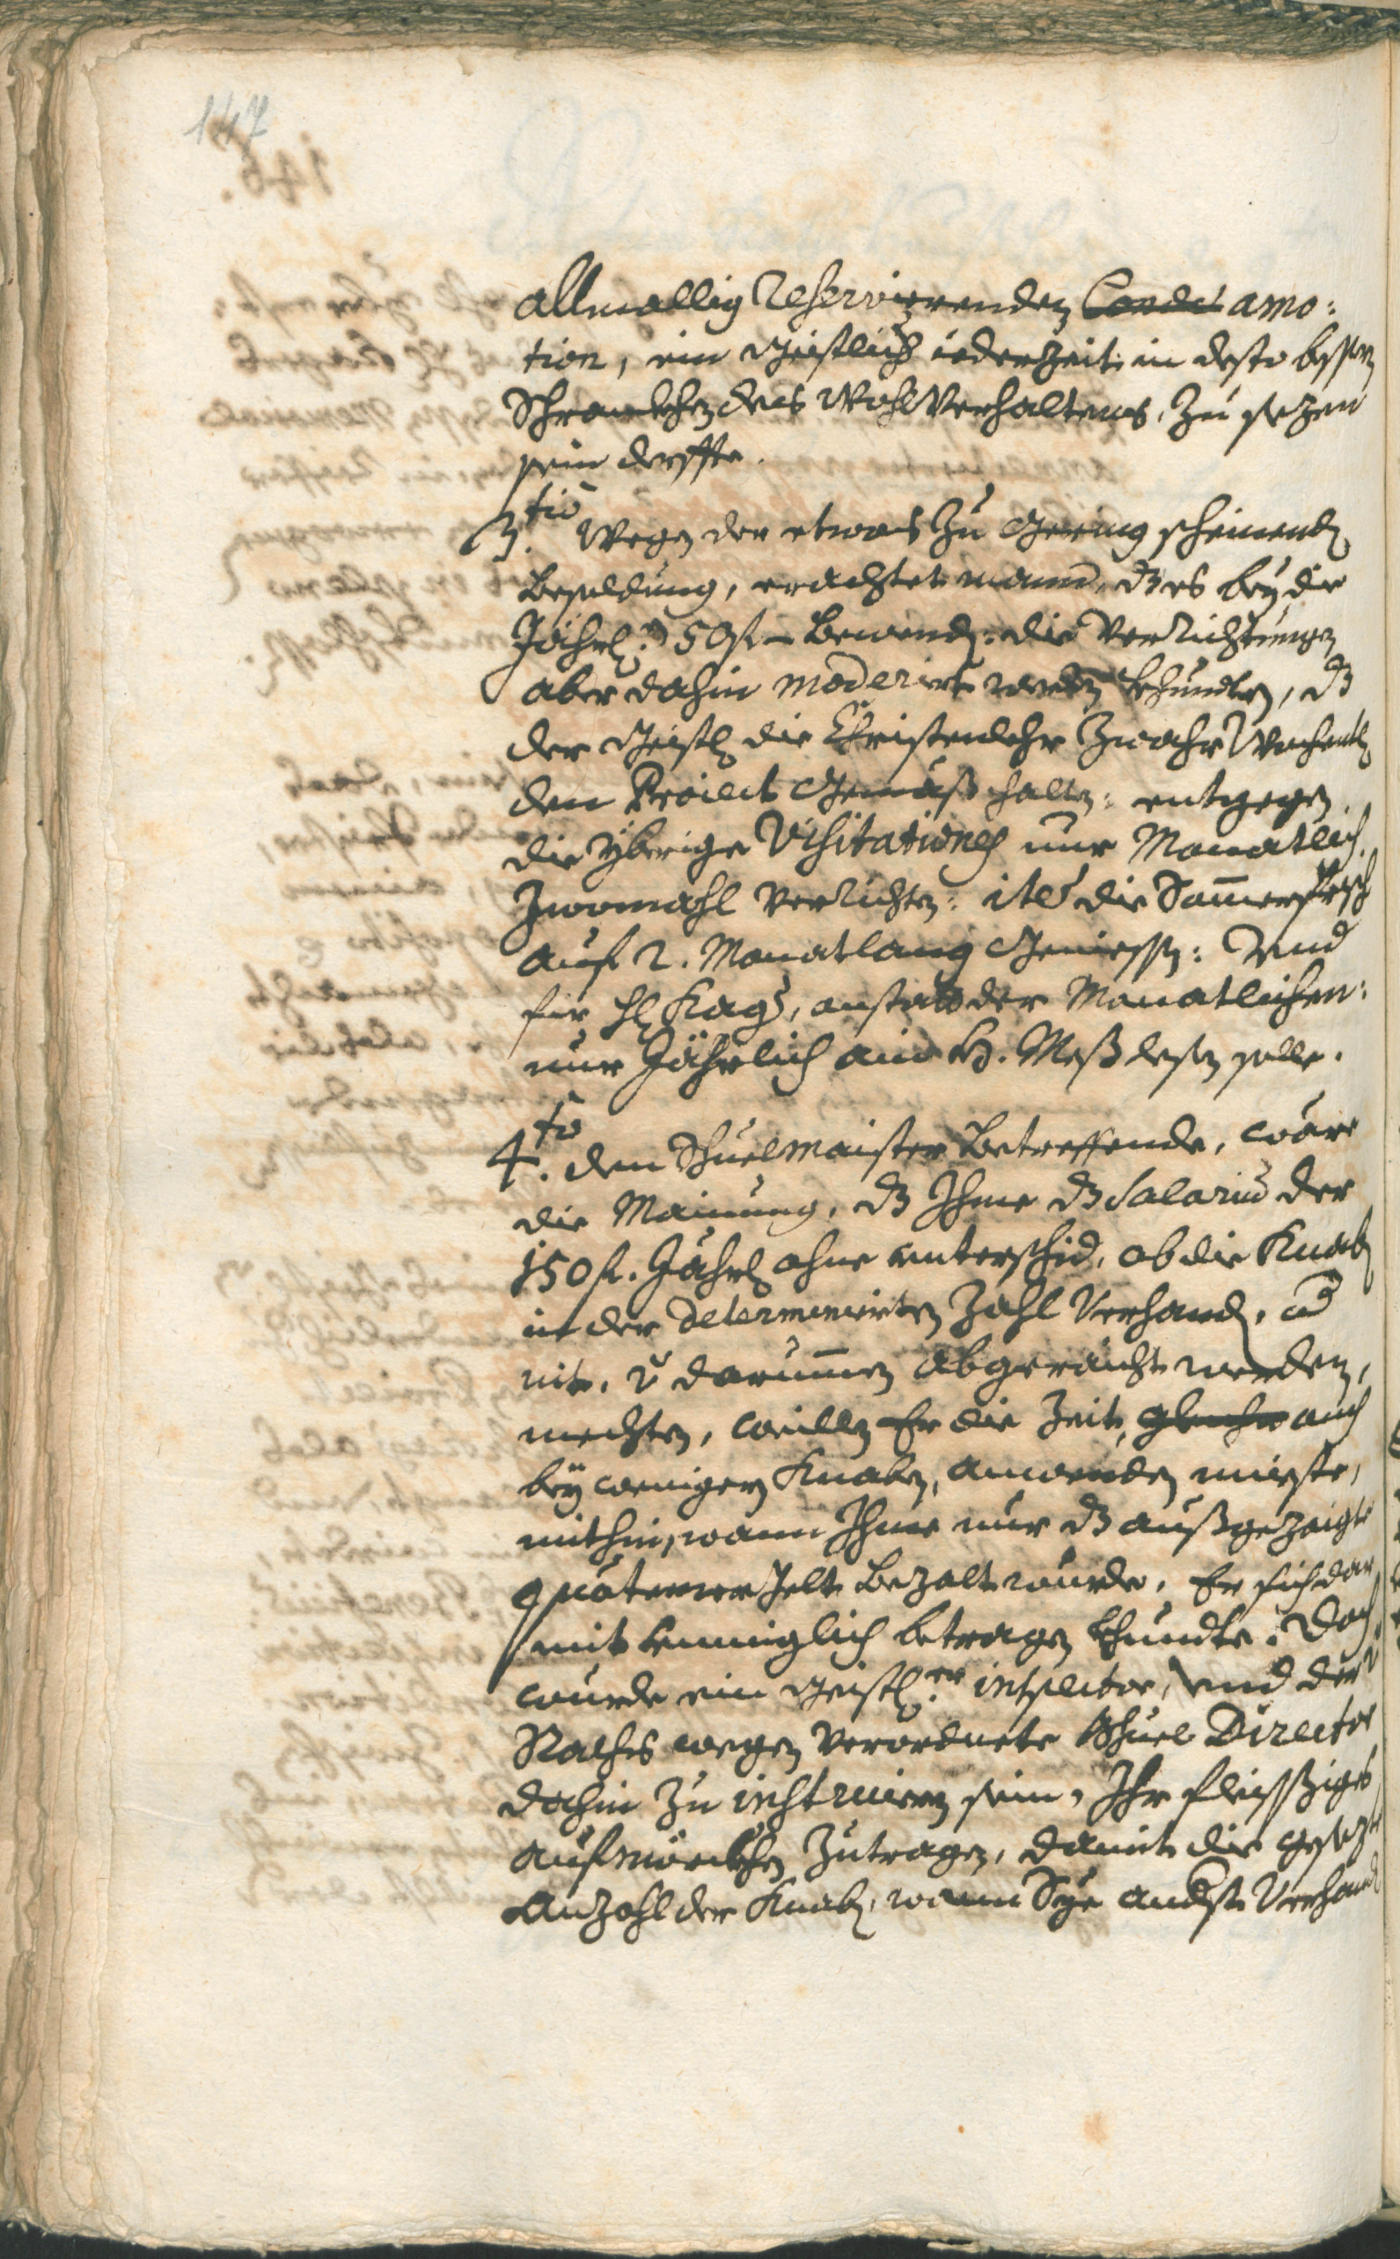 147
allmallig reservierenden Condi amo:
tion, ein Geistlich iederzeit in desto bessern
Schranckhen des Wohlverhaltens, zu sezen
sein derffte.
3.tio Wegen der etwas zu gering scheinend
Besoldung, erachtet mann, dz es bey die
Jährl: 50 f. bewend: die Verrichtungen
aber dahin moderirt werden khundten, dz
der Geistl die Christenlehr zwahr Wochentl
dem Proiect gemäß halten: entgegen
die yberige Visitationes nur Monatlich
zwomahl verrichten: ite die Sommerfrisch
auf 2. Monatlang geniessen: Vnd
für hl Kag, anstatt der Monatlichen:
nur Jährlich ain H. Meß lesen solle.
4.to den Schuelmaister betreffende, wäre
die Mainung, dz Ihme dz Salariu der
150 f. Jährl ohne unterschid, ob die Knab
in der determinirten Zahl verhand, od
nit, darumen abgeraicht werden,
mechten, weillen Er die Zeit, gleicher auch
bey wenigern Knaben, anwenden mueste,
mithin, wann Ihme nur dz außgezaigte
quatember Gelt bezalt wurde, Er sich dar
mit kemniglich betragen khundte. Doch
wurde ein Geistl.er inspector, Vnd der
Raths wegen verordnete Schuel Director
dahin zu instruiern sein, Ihr fleissiges
aufmörckhen zutragen, damit die gesezte
Anzahl der Knab, wann Sye anderst verhand